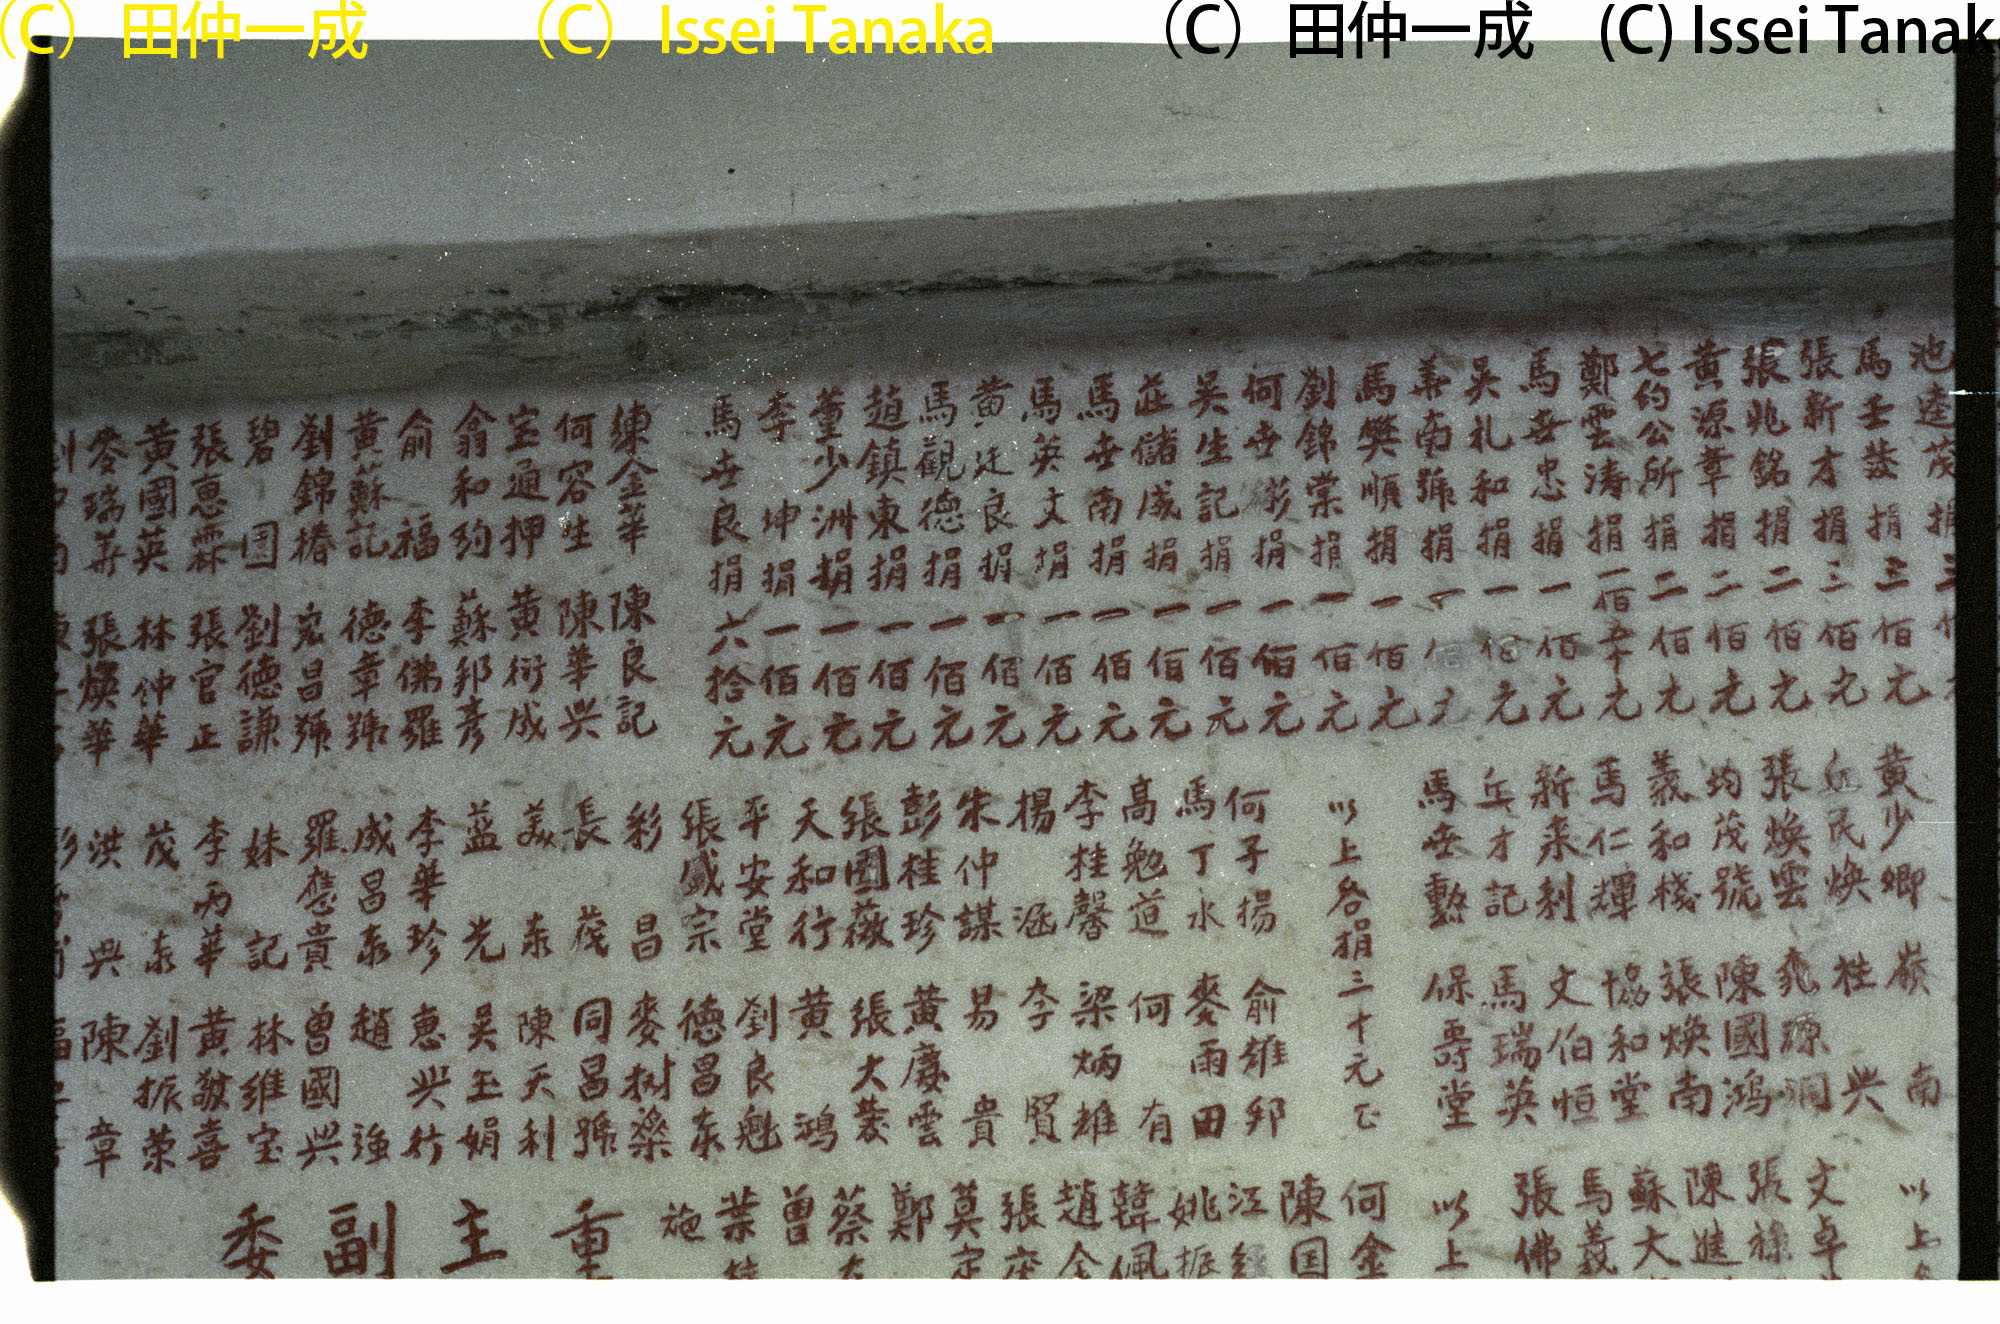 (C) 田仲一成 (C) Issei Tanaka (C) 田仲一成 (C) Issei Tanak
池達茂捐三
馬壬發捐三佰元
張新才捐三佰元
張兆銘捐二佰元
黃源章捐二佰元
七約公所捐二佰元
鄭雲涛捐一佰六十元
馬毋忠捐一佰元
吴礼和捐一佰元
華南號捐一佰元
馬樊順捐一佰元
劉錦棠捐一佰元
何毋彬捐一佰元
吴生記捐一佰元
莊儲成捐一佰元
馬毋南捐一佰元
馬英文捐一佰元
黃廷良捐一佰元
馬觀德捐一佰元
趙鎮東捐一佰元
董少洲捐一佰元
李坤捐一佰元
馬毋良捐六拾元
練金華 陳良記
何容生 陳華兴
宝通押 黃衍成
翕和約 蘇邦彥
俞福 李佛羅
黃蘇記 德章號
劉錦椿 宏昌號
碧国 劉德謙
張惠霖 張官正
黃國英 林仲華
麥瑞莽 張煥華
黃少卿 嶺南
丘民煥 桂兴
張煥雲 兆源洞
均茂號 陳國鴻
義和棧 張煥南
馬仁輝 協和堂
新来利 文伯恒
丘才記 馬瑞英
馬毋勲 保壽堂
以上
文卓
張祿
陳進
蘇大
馬義
張佛
以上
以上各捐三十元正
何子揚 俞維邦
馬丁水 麥雨田
高勉道 何有
李桂馨 梁炳雄
楊涵 李賢
朱仲謀 易貴
彭桂珍 黃慶雲
張國薇 張大發
天和行 黃鴻
平安堂 劉良魁
張盛宗 德昌泰
彩昌 麥树燊
長茂 同昌號
美泰 陳天利
益光 吴玉娟
李華珍 惠兴行
成昌泰 趙強
羅應貴 曾國兴
妹記 林維宝
李丙華 黃敬喜
茂泰 劉振荣
洪兴 陳章
何金
陳国
江經
姚振
韓佩
趙金
張庆
莫定
鄭
蔡
曾
葉桂
施
重
主
副
委